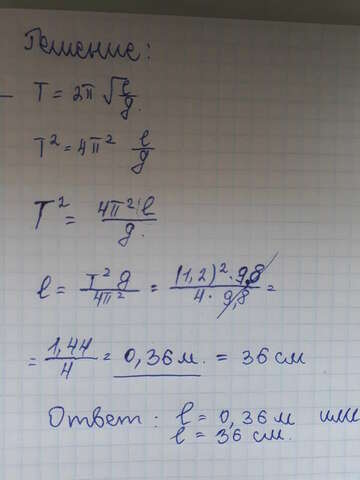 Решение:
T = 2π √l/g.
T² = 4π² l/g
T² = 4π² l/g.
l = T² g/4π² = (1,2)² · 9,8/4 · 9,8 =
= 1,44/4 = 0,36 м. = 36 см
Ответ: l = 0,36 м или
l = 36 см.